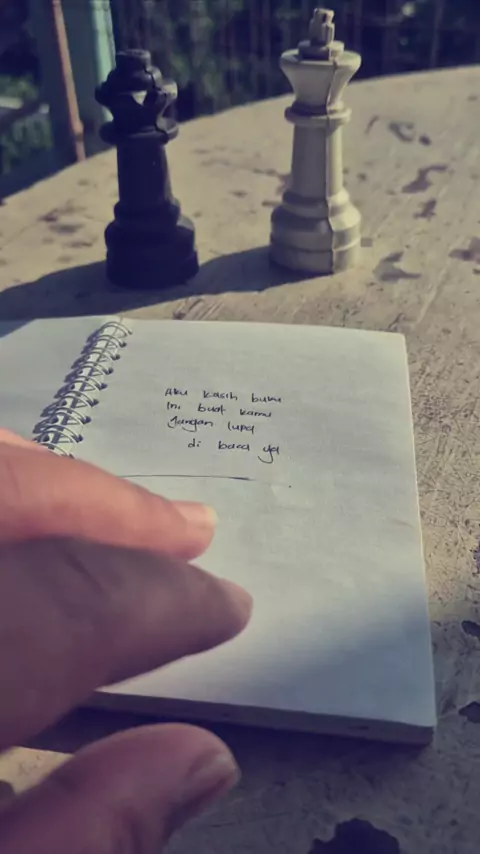 Aku kasih buku
Ini buat kamu
Jangan lupa
di baca ya